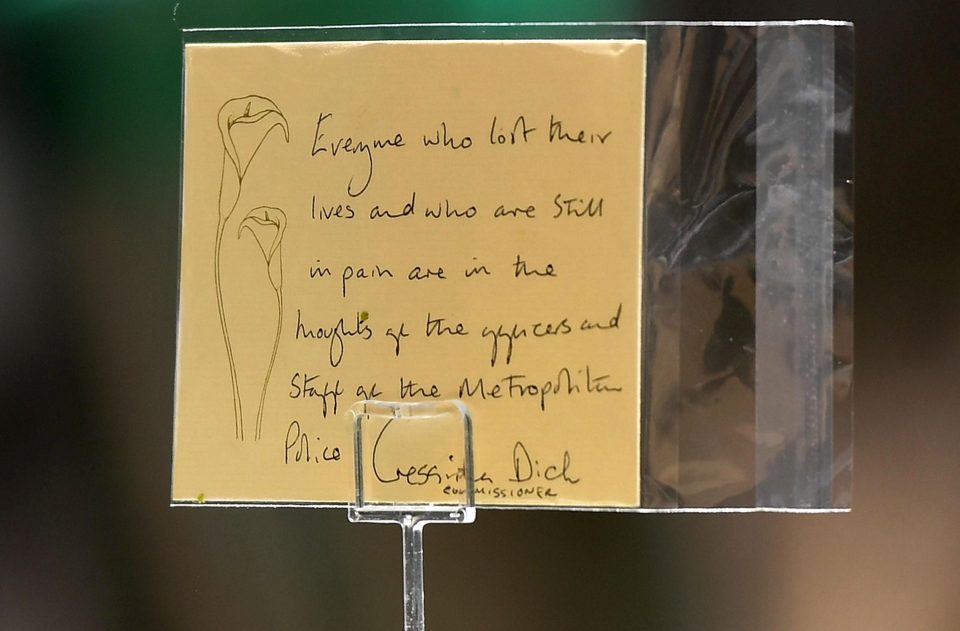 Everyone who lost their
lives and who are still
in pain are in the
thoughts of the officers and
Staff of the Metropolitan
Police Cressida Dick
COMMISSIONER